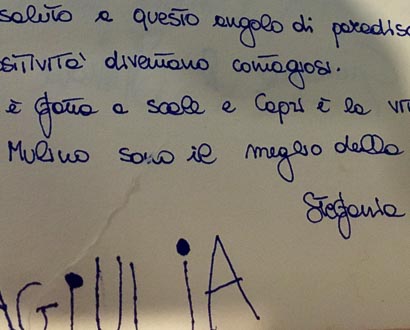 saluto a questo angolo di paradiso
positività diventano contagiosi.
è fatta a scale e Capri è la
Mulino sono il meglio della
Stefania
AGIULIA